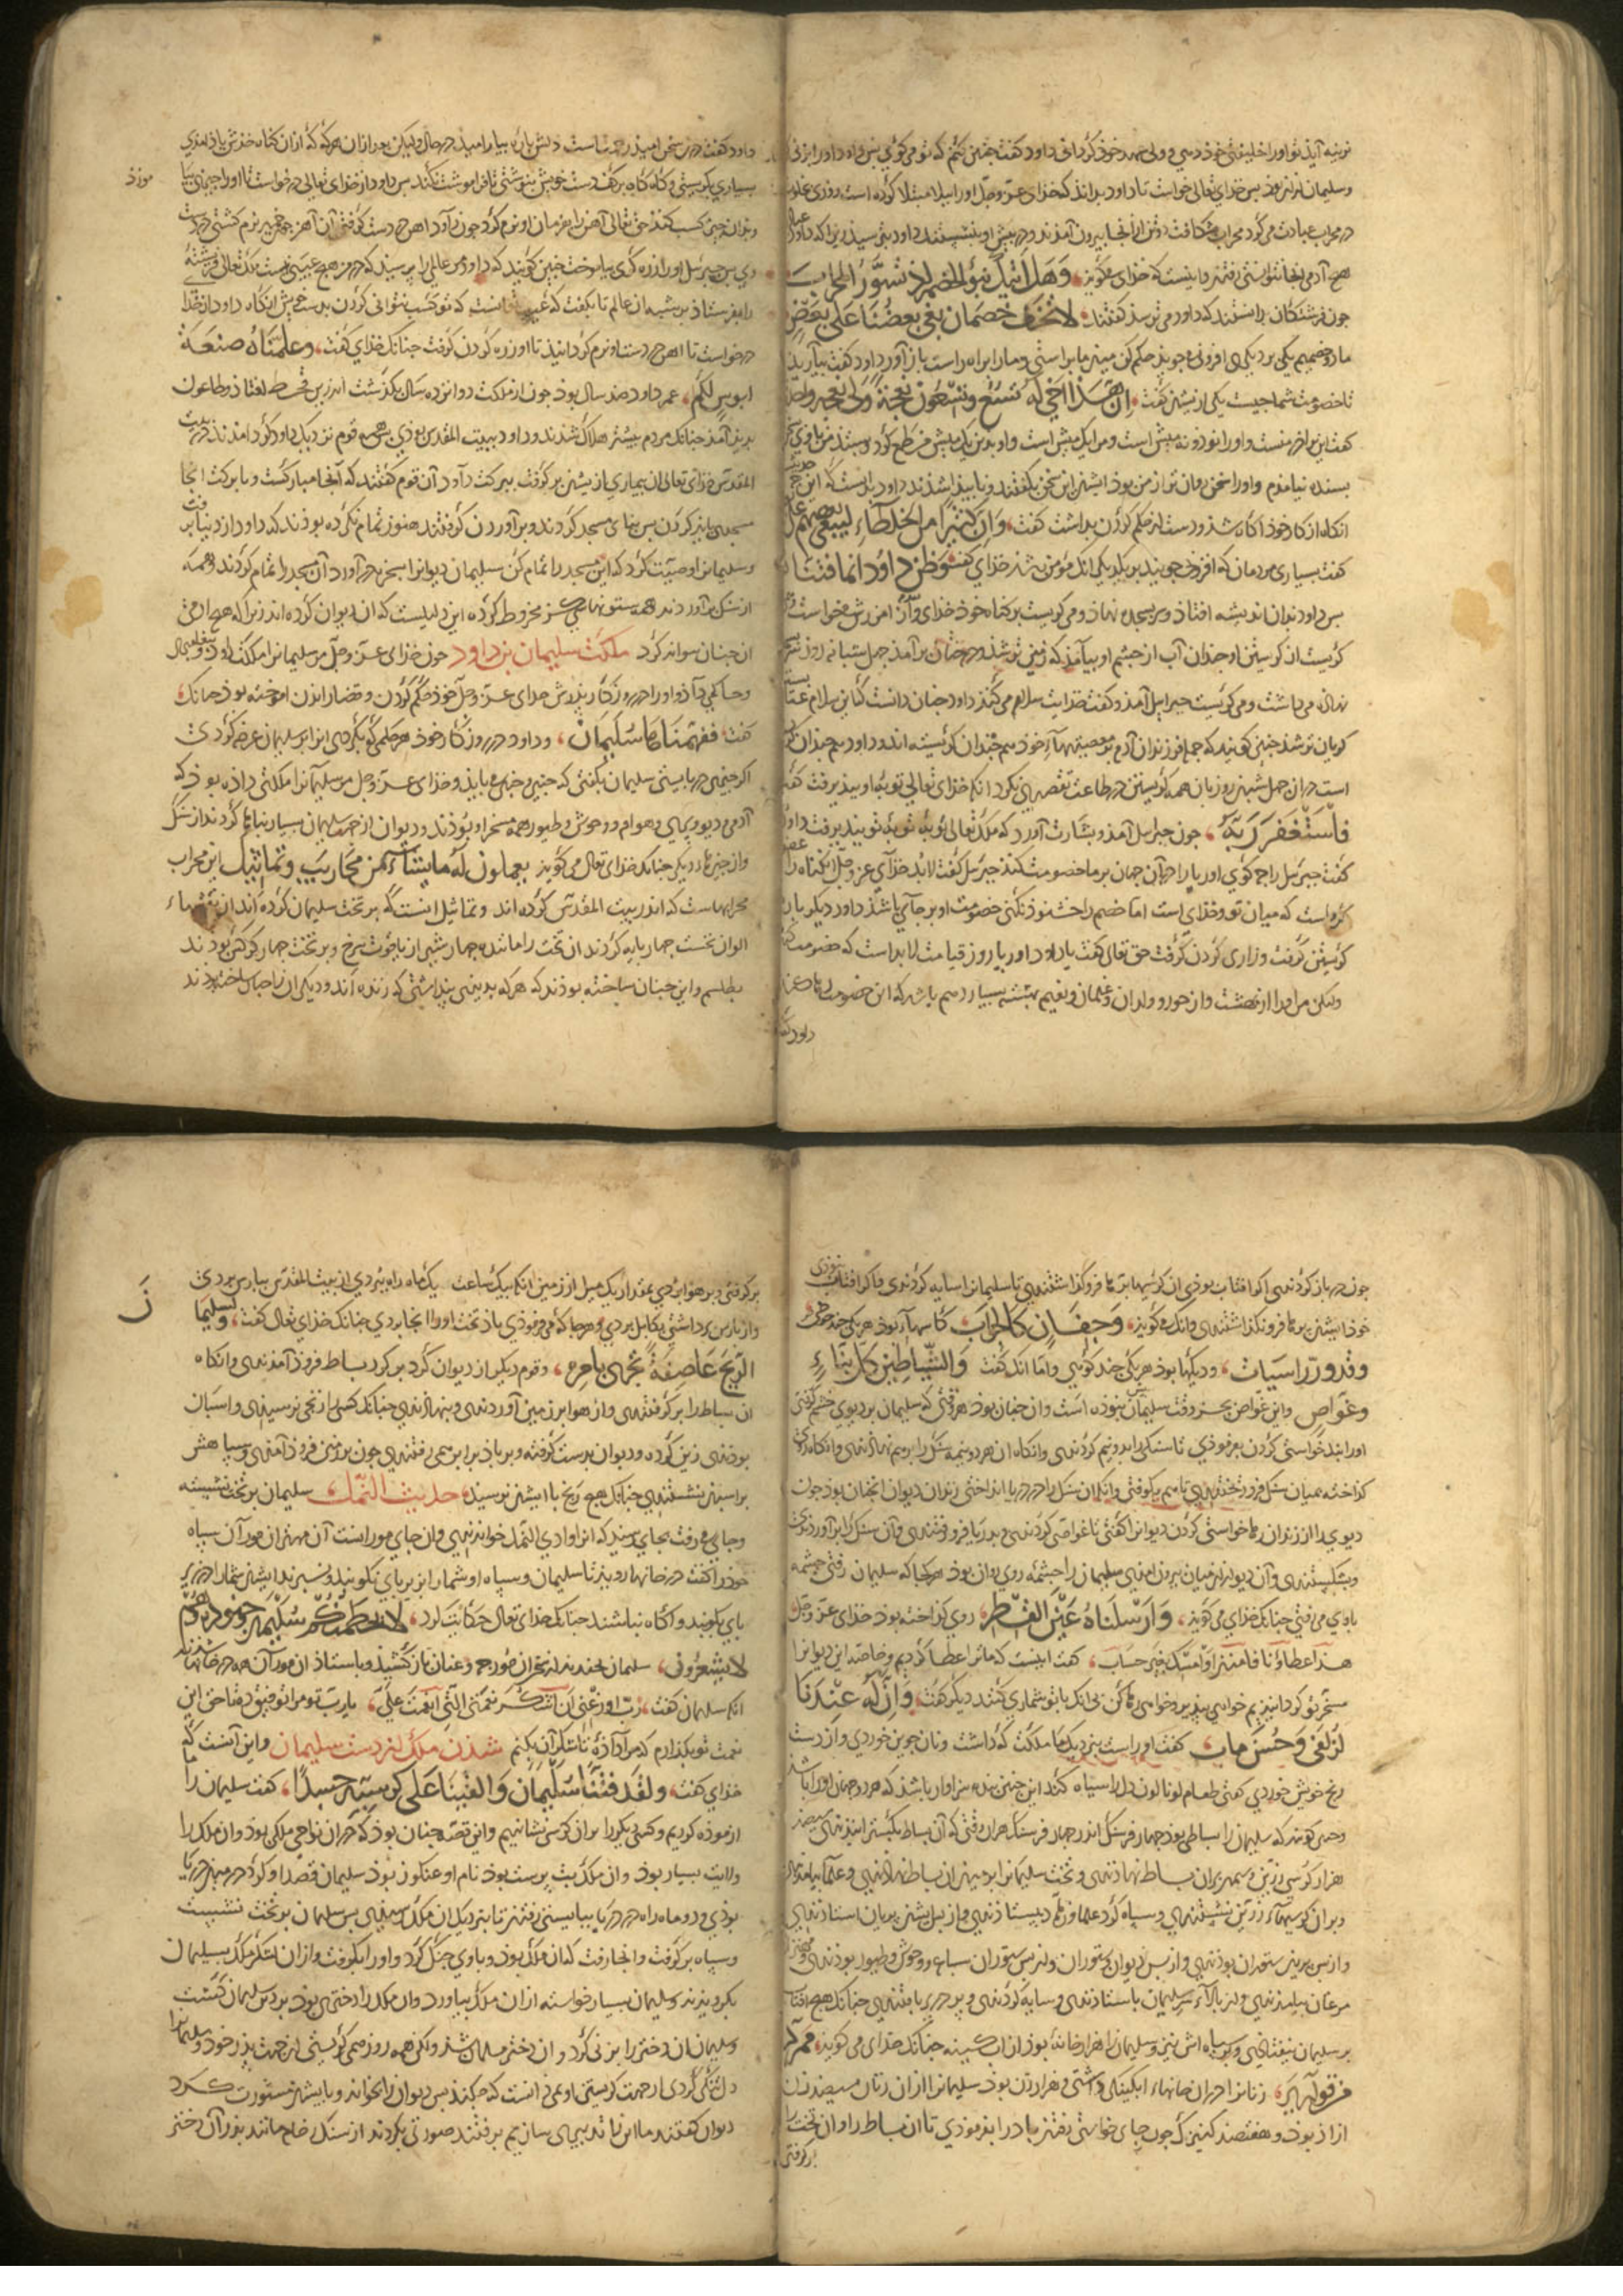 توبه آید تو او را خلیفتی خوذ دهی و ولی عهد خوذ کردانی داود کفت چنین کنم که تو می کوئی بس داود او را بزنی
وسلیمان از و بزاد بس خدای تعالی خواست تا داود بداند که خدای عز وجل او را مبتلا کرده است روزی
در محراب عبادت می کرد محراب بشکافت دو تن از آنجا بیرون آمدند و در پیش او بنشستند داود بترسید زیرا که داود
هیچ آدمی بخانه نتوانستی رفتن خدای می کوید وَهَل أتٰیکَ نبؤ الخصم اذ تسوّروا المحراب
چون فرشتکان دانستند که داود می ترسذ کفتند لا تخف خصمان بغی بعضنا علی بعض
ما دو خصمیم یکی بر دیکری افزونی جوید حکم کن میان ما براستی و ما را براه راست باز آور داود کفت بیارید
تا خصومت شما چیست یکی از یشان کفت ان هذا اخی له تسع و تسعون نعجة ولی نعجة واحدة
کفت این برادر منست و او را نود و نه میش است و مرا یک میش است و او بدین یک میش من طمع کرد
بسنده نیامدم و او را سخن روان تر از من بود ایشان این سخن بکفتند و ناپیدا شدند داود بدانست که این
انکاه از کار خوذ آکاه شد و دست از حکم کردن بداشت کفت وان کثیرا من الخلطاء لیبغی بعضهم علی
کفت بسیاری مردمان که افزونی جویند بر یکدیکر مکر انک مؤمن باشد خدای کفت وظن داود انما فتناه
بس داود بدان اندیشه افتاذ و سر بسجده نهاذ و می کریست بر کناه خوذ و از خدای امرزش می خواست
کریست از کریستن او چندان آب از چشم او بیامد که زمین تر شد و درختان بر آمد چهل شبانه روز سر
نهاده می داشت و می کریست جبرایل آمد و کفت خدایت سلام می کند داود چنان دانست که این سلام عتاب
کویان تر شد چنین کویند که جمله فرزندان آدم بر معصیتهاء خوذ هم چندان نکریسته اند که داود هم چندان کریسته
است در ان چهل شبان روز بان همه کریستن در طاعت تقصیر نکرد انکه خدای تعالی توبه او بپذیرفت کفت
فاستغفر ربّه چون جبرایل آمد و بشارت آورد که ملک تعالی توبه تو بپذیرفت داود
کفت جبرئیل را چه کوئی اوریا را در آن جهان بر ما خصومت کند جبرئیل کفت لابد خدای عز وجل آن کناه را
کرد است که میان تو و خدای است اما خصم را خشنود نکنی خصومت او بر جای باشد داود دیکر باره
کریستن کرفت و زاری کردن کرفت حق تعالی کفت یا داود اوریا روز قیامت لابد است که خصومت کند
ولیکن مر او را از بهشت و از حور و ولدان و غلمان و نعیم بهشت بسیار دهم باشد که این خصومت رها کند
داود کفت
داود کفت درین سخن امید رحمت است دلش باره بیارامید در حال ولیکن بعد از ان هر که که از ان کناه خوذش یاذ آمدی
بسیاری بکریستی و کناه بر کف دست خویش بنوشتی تا فراموشت نکند بس داود از خدای تعالی در خواست تا او را چیزی بیا
موزذ
وبدان چیز کسب کند حق تعالی آهن را بفرمان او نرم کرد چون آهن در دست کرفتی آن آهن چو خمیر نرم کشتی در دست
وی بس جبرئیل او را زره کری بیاموخت چنین کویند که داود مر عالمی را پرسید که در من هیچ عیبی هست ملک تعالی فرشته
را بفرستاذ بر شبه ان عالم تا بکفت که عیب تو انست که تو کسب نتوانی کردن بدست خویش انکاه داود از خدا
در خواست تا اهن در دست او نرم کردانید تا او زره کردن کرفت چنانک خدای کفت وعلّمناه صنعة
لبوسٍ لکم عمر داود صد سال بوذ چون از ملکت دوانزده سال بکذشت اندر زمین قحط افتاذ و طاعون
پدید آمد چنانک مردم بیشتر هلاک شدند و داود ببیت المقدس بودی بس همه قوم نزدیک داود کرد آمدند در بیت
المقدس خدای تعالی ان بیماری از یشان بر کرفت ببرکت داود آن قوم کفتند که آنجا مبارکست و با برکت انجا
مسجدی باید کردن بس بنای مسجد کردند و بر آوردن کرفتند هنوز تمام نکرده بوذند که داود از دنیا برفت
وسلیمان را وصیت کرد که این مسجد را تمام کن سلیمان دیوان را بسخره در آورد آن مسجد را تمام کردند و همه
از سنک بر آوردند همه ستونهای کز مخروط کرده این دلیلست که ان دیوان کرده اند زیرا که هیچ آدمی
ان چنان نتواند کرد ملکت سلیمان بن داود چون خدای عز وجل مر سلیمان را ملکت داد و پیغامبری
وحاکمی داد و او را در روزکار پدرش خدای عز وجل خوذ حکم کردن و قضا راندن آموخته بوذ چنانک
کفت ففهّمناها سلیمان و داود در روزکار خوذ هر حکمی که بکردی انرا بر سلیمان عرضه کردی
اکر چیزی در بایستی سلیمان بکفتی که چنین و چنین می باید و خدای عز وجل مر سلیمان را مملکتی داذه بوذ که
آدمی و دیو و پری و هوام و وحوش و طیور همه مسخر او بوذند و دیوان از جهت سلیمان بسیار بناها کردند از سنک
واز چیزهاء دیکر چنانک خدای تعالی می کوید یعملون له ما یشاء من محاریب و تماثیل این محراب
محرابهاست که اندر بیت المقدس کرده اند و تماثیل انست که بر تخت سلیمان کرده اند از نقشهاء
الوان تخت چهار پایه کردند ان تخت را مانند چهار شیر از یاقوت سرخ و بر تخت چهار کرکس بوذند
بطلسم و این چنان ساخته بوذند که هر که بدیدی پنداشتی که زنده اند و دیکر ان را چنان ساخته بوذند
چون در باز کردندی اکر افتاب بوذی ان کرکسها پرها فرو کذاشتندی تا سلیمان را سایه کردندی و اکر افتاب نبوذی
خوذ ایشان پرها فرو نکذاشتندی وانک می کوید وجفان کالجواب کاسهاء بوذ هر یکی چند حوضی
وقدور راسیات و دیکها بوذ هر یکی چند کوهی و اما انک کفت والشیاطین کل بنّاء
وغوّاص و این غواصی بجز در وقت سلیمان نبوذه است و ان چنان بوذ هر وقتی که سلیمان بر دیوی خشم کرفتی
او را بند خواستی کردن بفرموذی تا سنکی را بدو نیم کردندی وانکاه ان هر دو نیمه سنک را بر هم نهادندی وانکاه روی
کداخته بمیان سنک فرو ریختندی تا بهم بکرفتی وانکه ان سنک را در دریا انداختی زندان دیوان انچنان بوذ چون
دیوی را از زندان رها خواستی کردن دیوان را کفتی تا غواصی کردندی و بدریا فرو رفتندی و آن سنک را بر آوردندی
وبشکستندی و آن دیو از ان میان بیرون آمدی سلیمان را چشمه روی روان بوذ هر کجا که سلیمان رفتی چشمه
باوی می رفتی چنانک خدای می کوید وارسلناه عین القطر روی کداخته بوذ خدای عز وجل
هذا عطاؤنا فامنن او امسک بغیر حساب کفت اینست که ما ترا عطا کردیم و خاصه این دیوان را
مسخر تو کردانیدیم خواهی ببند و خواهی رها کن بی انک با تو شماری کنند دیکر کفت وانّ له عندنا
لزلفی وحسن ماب کفت او راست بنزدیک ما با ملکت که داشت و نان جوین خوردی و از دست
رنج خویش خوردی کفتی طعام لونا لون دل را سیاه کند این چنین بنده سزاوار باشد که هر دو جهان او را باشد
وچنین کویند که سلیمان را بساطی بوذ چهار فرسنک اندر چهار فرسنک هران وقتی که آن بساط بکسترانیدندی سیصد
هزار کرسی زرین و سیمین بران بساط نهادندی و تخت سلیمان را بر میان ان بساط نهادندی و علما بیامدندی
وبران کرسیهاء زرین نشستندی و سپاه کرد علما اندر بیستادندی و از پس ایشان پریان استادندی
واز پس پریان ستوران بوذندی و از پس دیوان ستوران و از پس ستوران سباع و وحوش و طیور بوذندی
مرغان بیامدندی و از بالاء سر سلیمان باستادندی و سایه کردندی و پر در پر بافتندی چنانک هیچ افتاب
بر سلیمان نیفتادی و بر سپاه اش نیز و سلیمان را هزار خانه بوذ از ابکینه چنانک خدای می کوید ممرّد
من قواریر زنان را در ان خانهاء ابکینه داشتی و هزار زن بوذ سلیمان را از ان زنان سیصد زن
ازاد بوذ و هفتصد کنیزک چون جای خواستی رفتن باد را بفرموذی تا ان بساط را و ان تخت را
بر کرفتی
بر کرفتی و بر هوا بردی بمقدار یک میل از زمین انکه بیک ساعت یک ماه راه ببردی از بیت المقدس بپارس بردی
واز پارس برداشتی بکابل بردی و هر جا که می فرموذی باذ تخت او را انجا بردی چنانک خدای تعالی کفت ولسلیمان
الریح عاصفة تجری بامره و قوم دیکر از دیوان کرد بر کرد بساط فروذ آمدندی وانکاه
ان بساط را بر کرفتندی و از هوا بر زمین آوردندی و بنهادندی چنانک کس را رنجی نرسیدی و اسبان
بوذندی زین کرده و دیوان بدست کرفته و بر باد برابر همی رفتندی چون بر زمین فروذ آمدی سپاهش
بر اسبان نشستندی چنانک هیچ رنج با ایشان نرسیدی حدیث النمل سلیمان بر تخت نشسته
وجای می رفت بجای رسید که انرا وادی النمل خواندندی و ان جای موراست آن مهتر ان موران سپاه
خوذ را کفت در خانها روید تا سلیمان و سپاه او شما را بزیر پای نکوبند و نسپرند ایشان شما را در زیر
پای بکوبند و آکاه نباشند چنانک خدای تعالی حکایت کرد لا یحطمنکم سلیمان وجنوده وهم
لا یشعرون سلیمان بخندید از سخن ان مورچه و عنان باز کشید و باستاذ ان موران همه در خانها شدند
انکه سلیمان کفت رب اوزعنی ان اشکر نعمتک التی انعمت علیّ یا رب تو مرا توفیق ده تا حق این
نعمت تو بکذارم که مرا داذه تا شکر آن بکنم شذن ملک از دست سلیمان و این آنست که
خدای کفت ولقد فتنّا سلیمان والقینا علی کرسیّه جسدًا کفت سلیمان را ما
ازموذه کردیم و کسی دیکر را بران کرسی نشاندیم و این قصه چنان بوذ که در ان نواحی ملکی بوذ و ان ملک را
ولایت بسیار بوذ و ان ملک بت پرست بوذ نام او عنکوذ بوذ سلیمان قصد او کرد در میان دریا
بوذی و دو ماه راه در دریا ببایستی رفتن تا بنزدیک ان ملک رسیدی بس سلیمان بر تخت نشست
وسپاه بر کرفت و انجا رفت که ان ملک بوذ و باوی جنک کرد و او را بکرفت و از ان لشکر ملک بسلیمان
بکرویدند و سلیمان بسیار خواسته از ان ملک بیاورد و ان ملک را دختری بوذ بر دین سلیمان کشت
وسلیمان ان دختر را بزنی کرد و ان دختر مسلمان شد ولکن همه روز همی کریستی از جهت پدر خوذ و سلیمان را
دل تنکی کردی از جهت کریستن او نمی دانست که چه کند بس دیوان را بخواند و با ایشان مشورت کرد
دیوان کفتند ما این را تدبیری سازیم برفتند صورتی بکردند از سنک رخام مانند پدر آن دختر